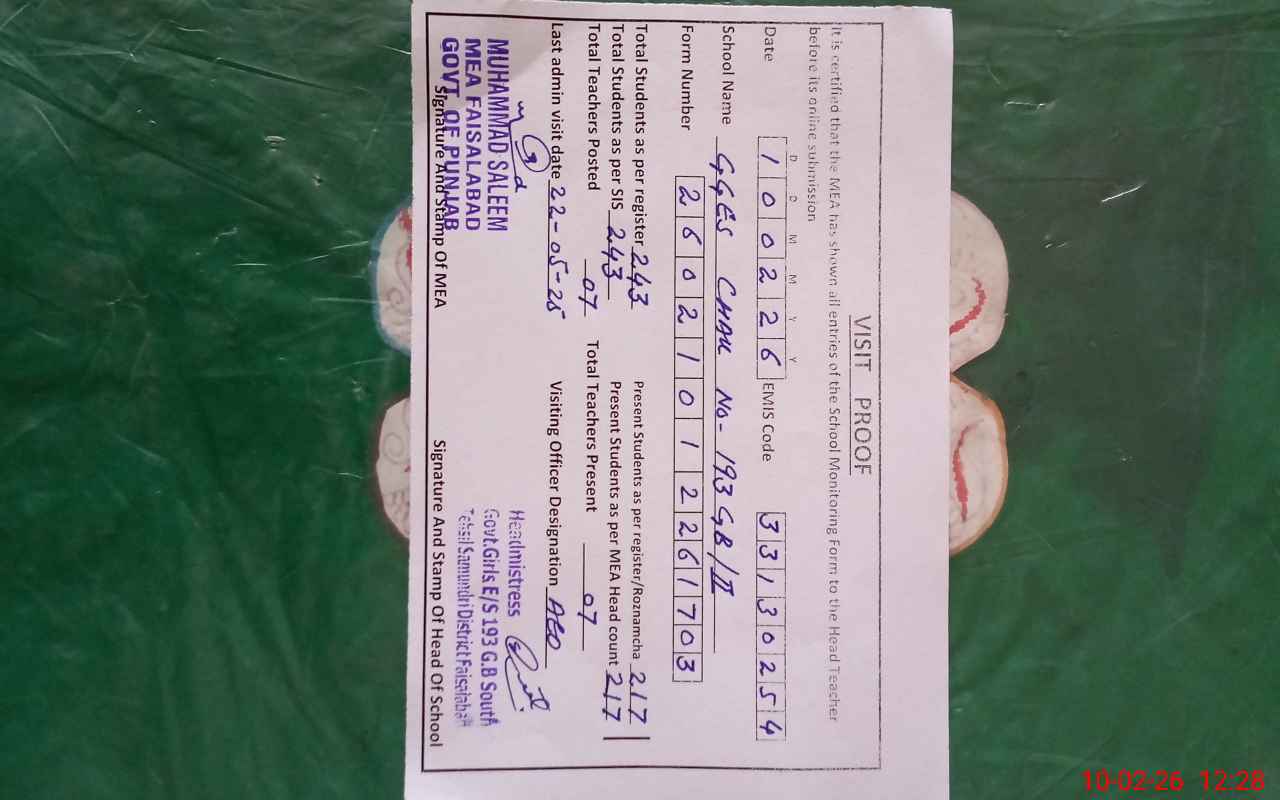 VISIT PROOF
It is certified that the MEA has shown all entries of the School Monitoring Form to the Head Teacher
before its online submission
D D M M Y Y
Date 1 0 0 2 2 6 EMIS Code 3 3 1 3 0 2 5 4
School Name GGES CHAK No- 193 GB/II
Form Number 2 6 0 2 1 0 1 2 2 6 1 7 0 3
Total Students as per register 243 Present Students as per register/Roznamcha 217
Total Students as per SIS 243 Present Students as per MEA Head count 217
Total Teachers Posted 07 Total Teachers Present 07
Last admin visit date 22-05-25 Visiting Officer Designation AEO
MUHAMMAD SALEEM
MEA FAISALABAD
GOVT. OF PUNJAB
Headmistress
Govt.Girls.E/S 193 G.B South
Tehsil Samundri District Faisalabad
Signature And Stamp Of MEA Signature And Stamp Of Head Of School
10-02-26 12:28